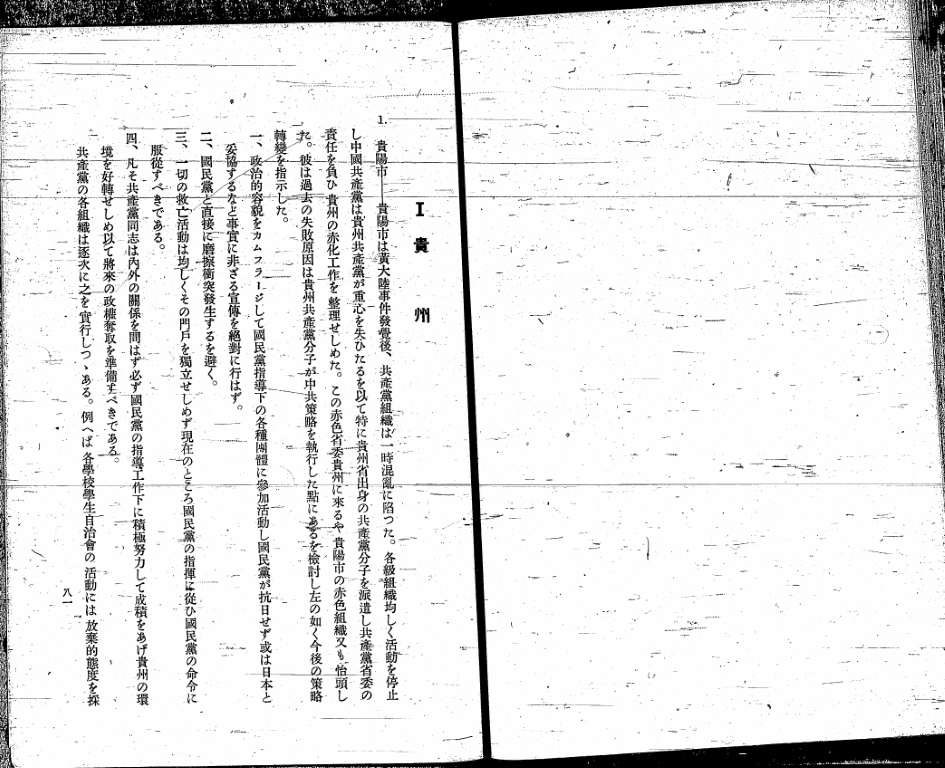 I 貴州
1. 貴陽市 貴陽市は黃大陸事件發覺後、共產黨組織は一時混亂に陷つた。各級組織均しく活動を停止
し中國共產黨は貴州共產黨が重心を失ひたるを以て特に貴州省出身の共產黨分子を派遣し共產黨省委の
責任を負ひ貴州の赤化工作を整理せしめた。この赤色省委貴州に來るや貴陽市の赤色組織又も怡頭し
た。彼は過去の失敗原因は貴州共產黨分子が中共策略を執行した點にあるを檢討し左の如く今後の策略
轉變を指示した。
一、政治的容貌をカムフラージして國民黨指導下の各種團體に參加活動し國民黨が抗日せず或は日本と
妥協するなど事實に非ざる宣傳を絕對に行はず。
二、國民黨と直接に磨擦衝突發生するを避く。
三、一切の救亡活動は均しくその門戶を獨立せしめず現在のところ國民黨の指揮に從ひ國民黨の命令に
服從すべきである。
四、凡そ共產黨同志は內外の關係を問はず必ず國民黨の指導工作下に積極努力して成積をあげ貴州の環
境を好轉せしめ以て將來の政權奪取を準備すべきである。
共產黨の各組織は逐次に之を實行しつゝある。例へば各學校學生自治會の活動には放棄的態度を採
八一